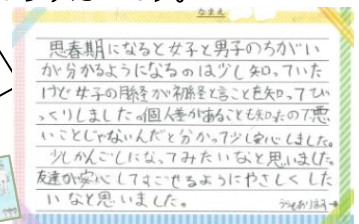 なまえ
思春期になると女子と男子のちがい
が分かるようになるのは少し知っていた
けど女子の月経が初経と言ことを知ってび
っくりしました。個人差があることも知たので悪
いことじゃないんだと分かって少し安心しました。
少しかんごしになってみたいなと思いました。
友達が安心してすごせるようにやさしくした
いなと思いました。
うらもあります→